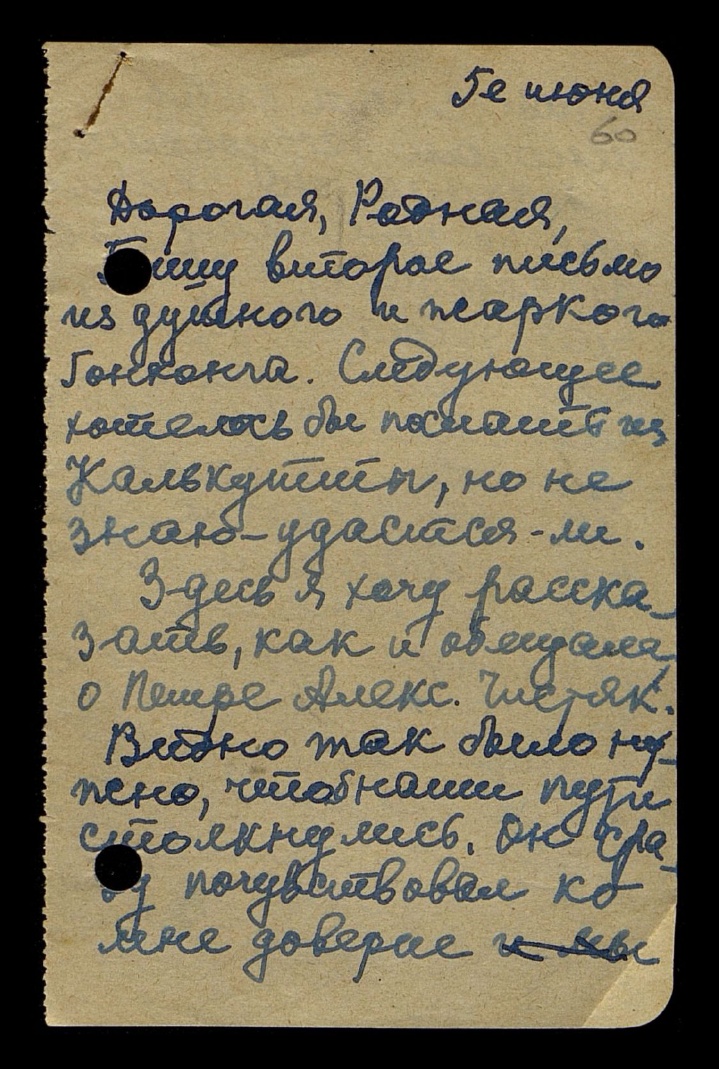 5е июня
60
Дорогая, Родная,
Пишу второе письмо
из душного и жаркого
Гонконга. Следующее
хотелось бы послать из
Калькутты, но не
знаю-удастся-ли.
Здесь я хочу расска-
зать, как и обещала,
о Петре Алекс. Чистяк.
Видно так было ну-
жно, чтоб наши пути
столкнулись. Он сра-
зу почувствовал ко
мне доверие и мы